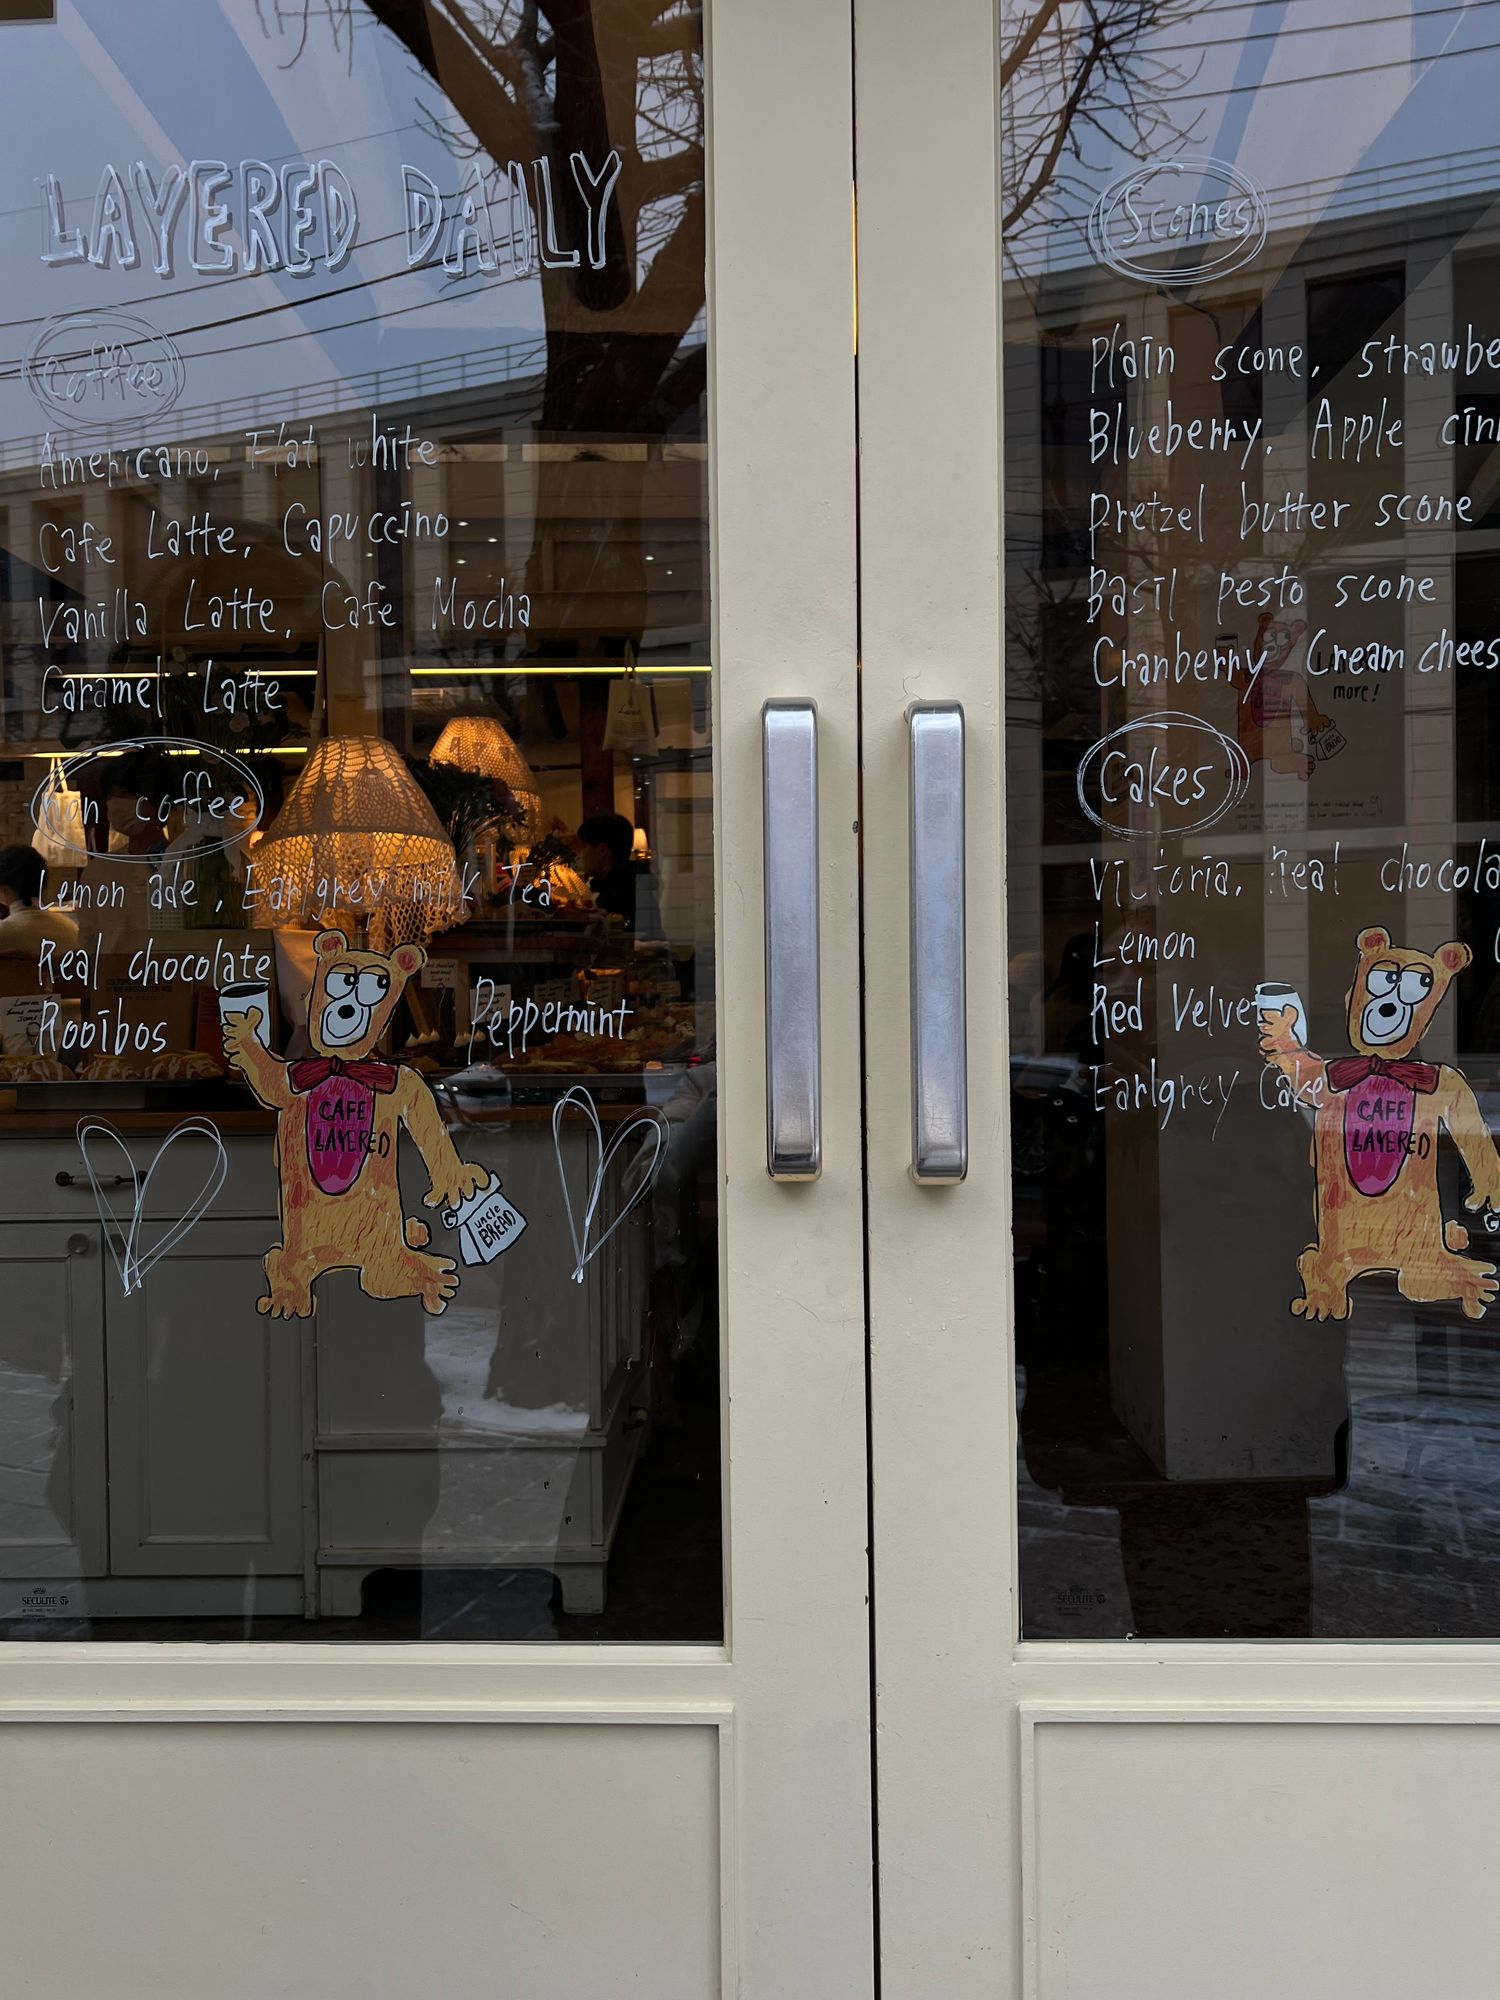 LAYERED DAILY
Coffee
Americano, Flat white
Cafe Latte, Capuccino
Vanilla Latte, Cafe Mocha
Caramel Latte
non coffee
Lemon ade, Earlgrey milk Tea
Real chocolate
Rooibos
Peppermint
CAFE
LAYERED
uncle
BREAD
SECULITE
Scones
Plain scone, strawbe
Blueberry, Apple cinn
Pretzel butter scone
Basil pesto scone
Cranberry Cream chees
more!
Cakes
Victoria, Real chocola
Lemon
Red Velvet
Earlgrey Cake
CAFE
LAYERED
SECULITE